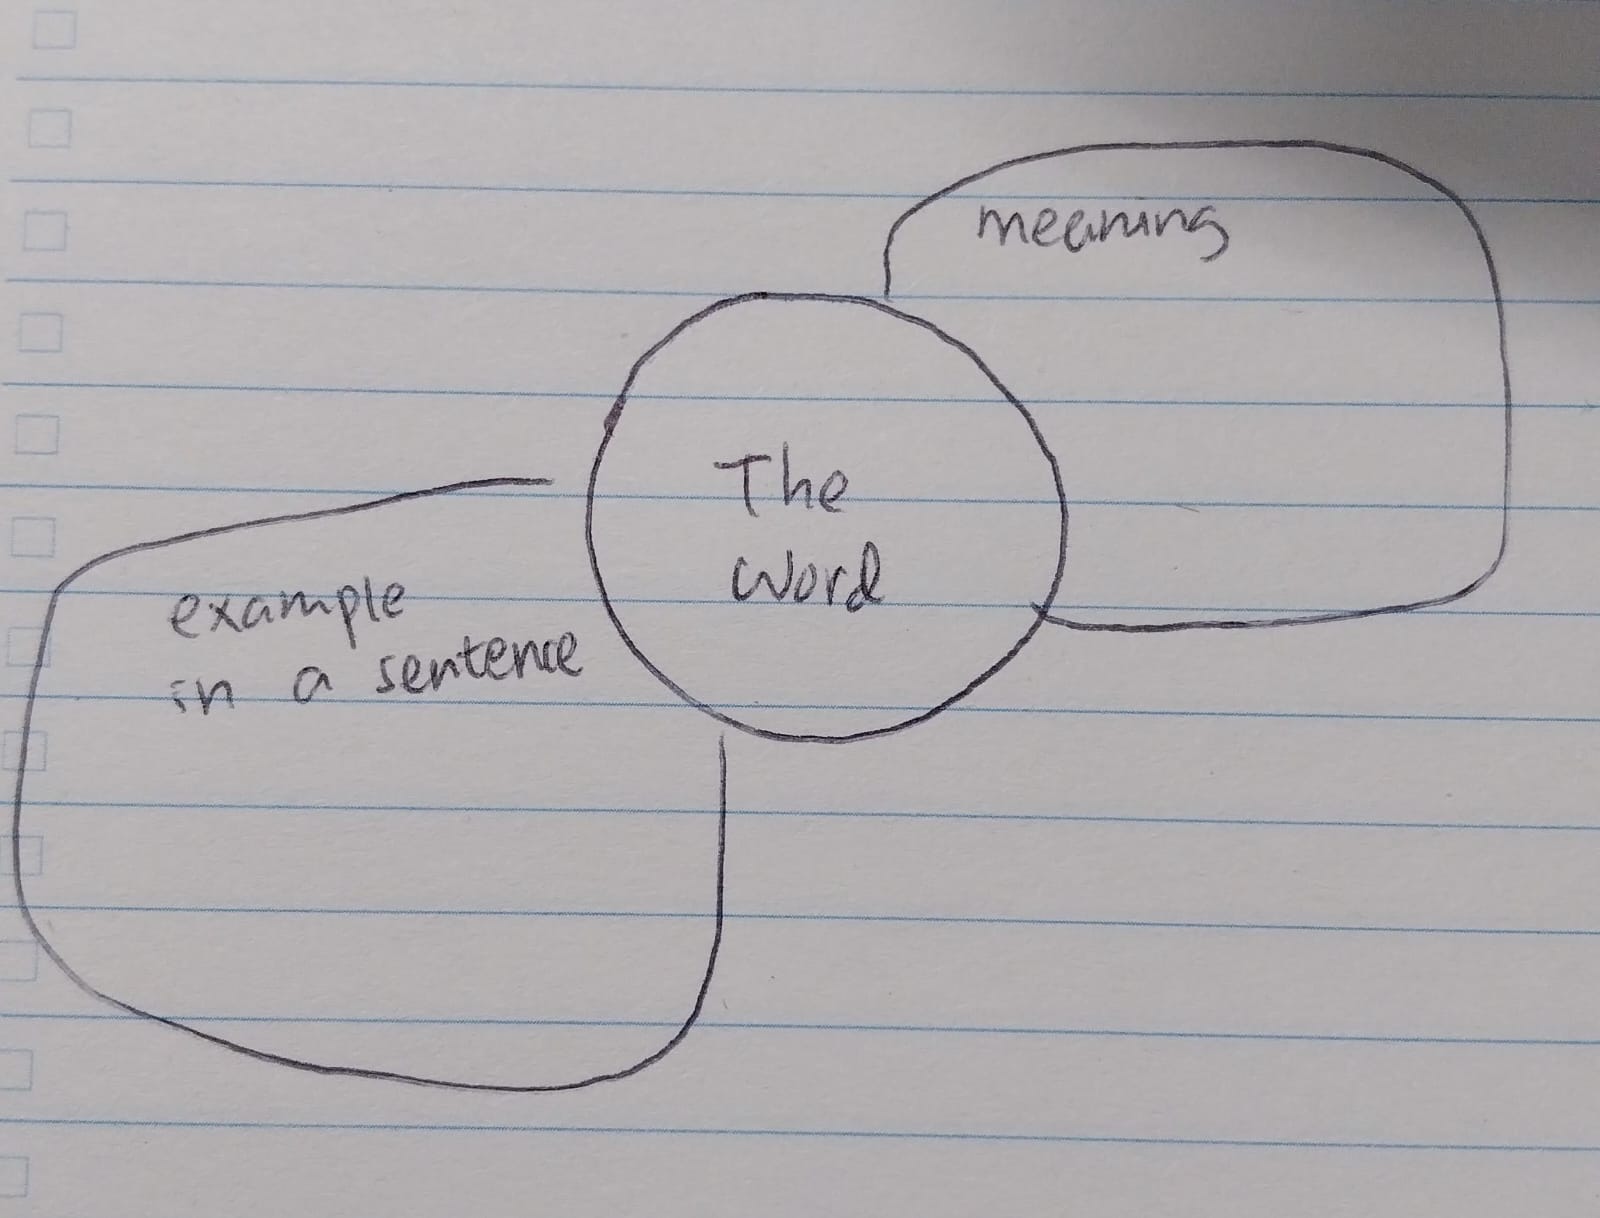 meaning
The
word
example
in a sentence